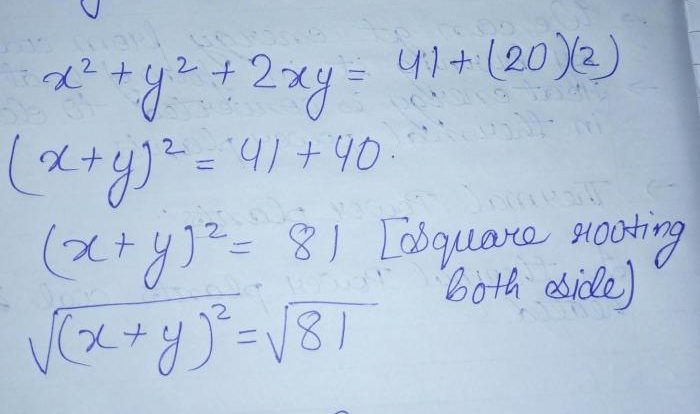 x² + y² + 2xy = 41 + (20)(2)
(x + y)² = 41 + 40.
(x + y)² = 81 [square rooting
both side]
√(x + y)² = √81